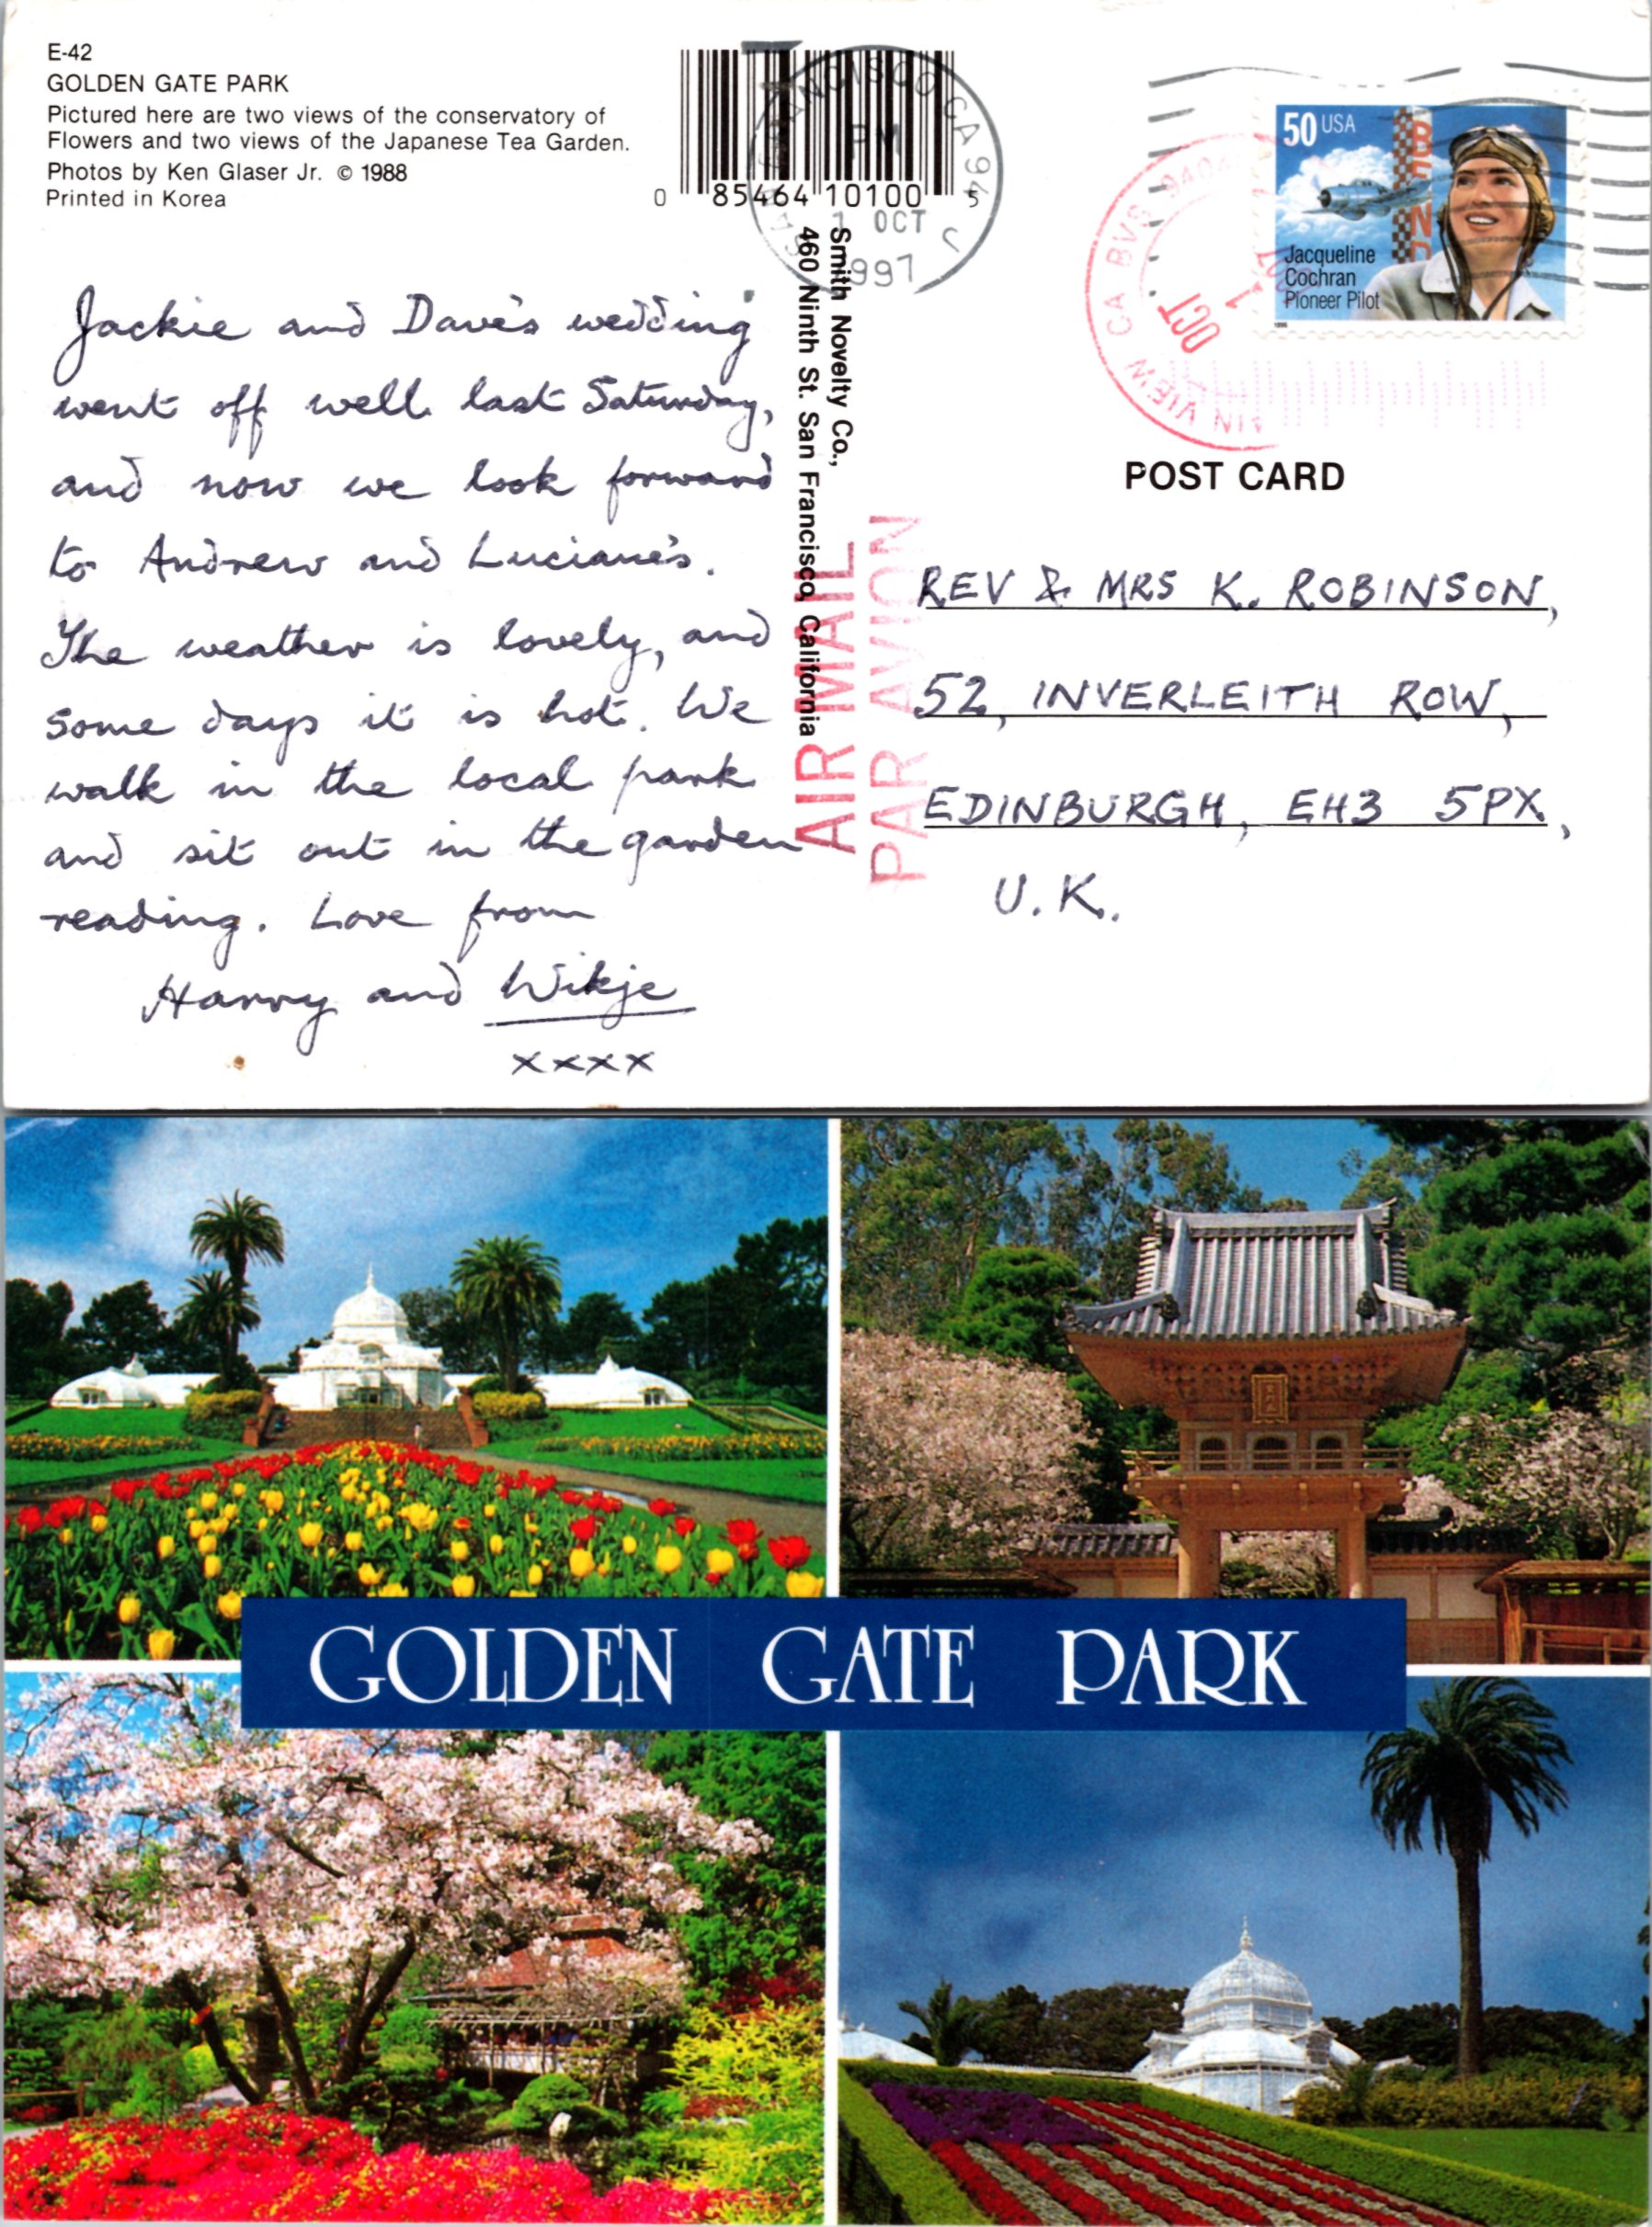 E-42
GOLDEN GATE PARK
Pictured here are two views of the conservatory of
Flowers and two views of the Japanese Tea Garden.
Photos by Ken Glaser Jr. © 1988
Printed in Korea
0 85464 10100 5
FRANCISCO CA 94
PM
1 OCT
1997
Smith Novelty Co.,
460 Ninth St. San Francisco, California
Jackie and Dave's wedding
went off well last Saturday,
and now we look forward
to Andrew and Luciane's.
The weather is lovely, and
some days it is hot. We
walk in the local park
and sit out in the garden
reading. Love from
Harry and Wikje
xxxx
AIR MAIL
PAR AVION
50 USA
BEND
Jacqueline
Cochran
Pioneer Pilot
1996
VIEW CA BVS
OCT 1
POST CARD
REV & MRS K. ROBINSON,
52, INVERLEITH ROW,
EDINBURGH, EH3 5PX,
U.K.
GOLDEN GATE PARK